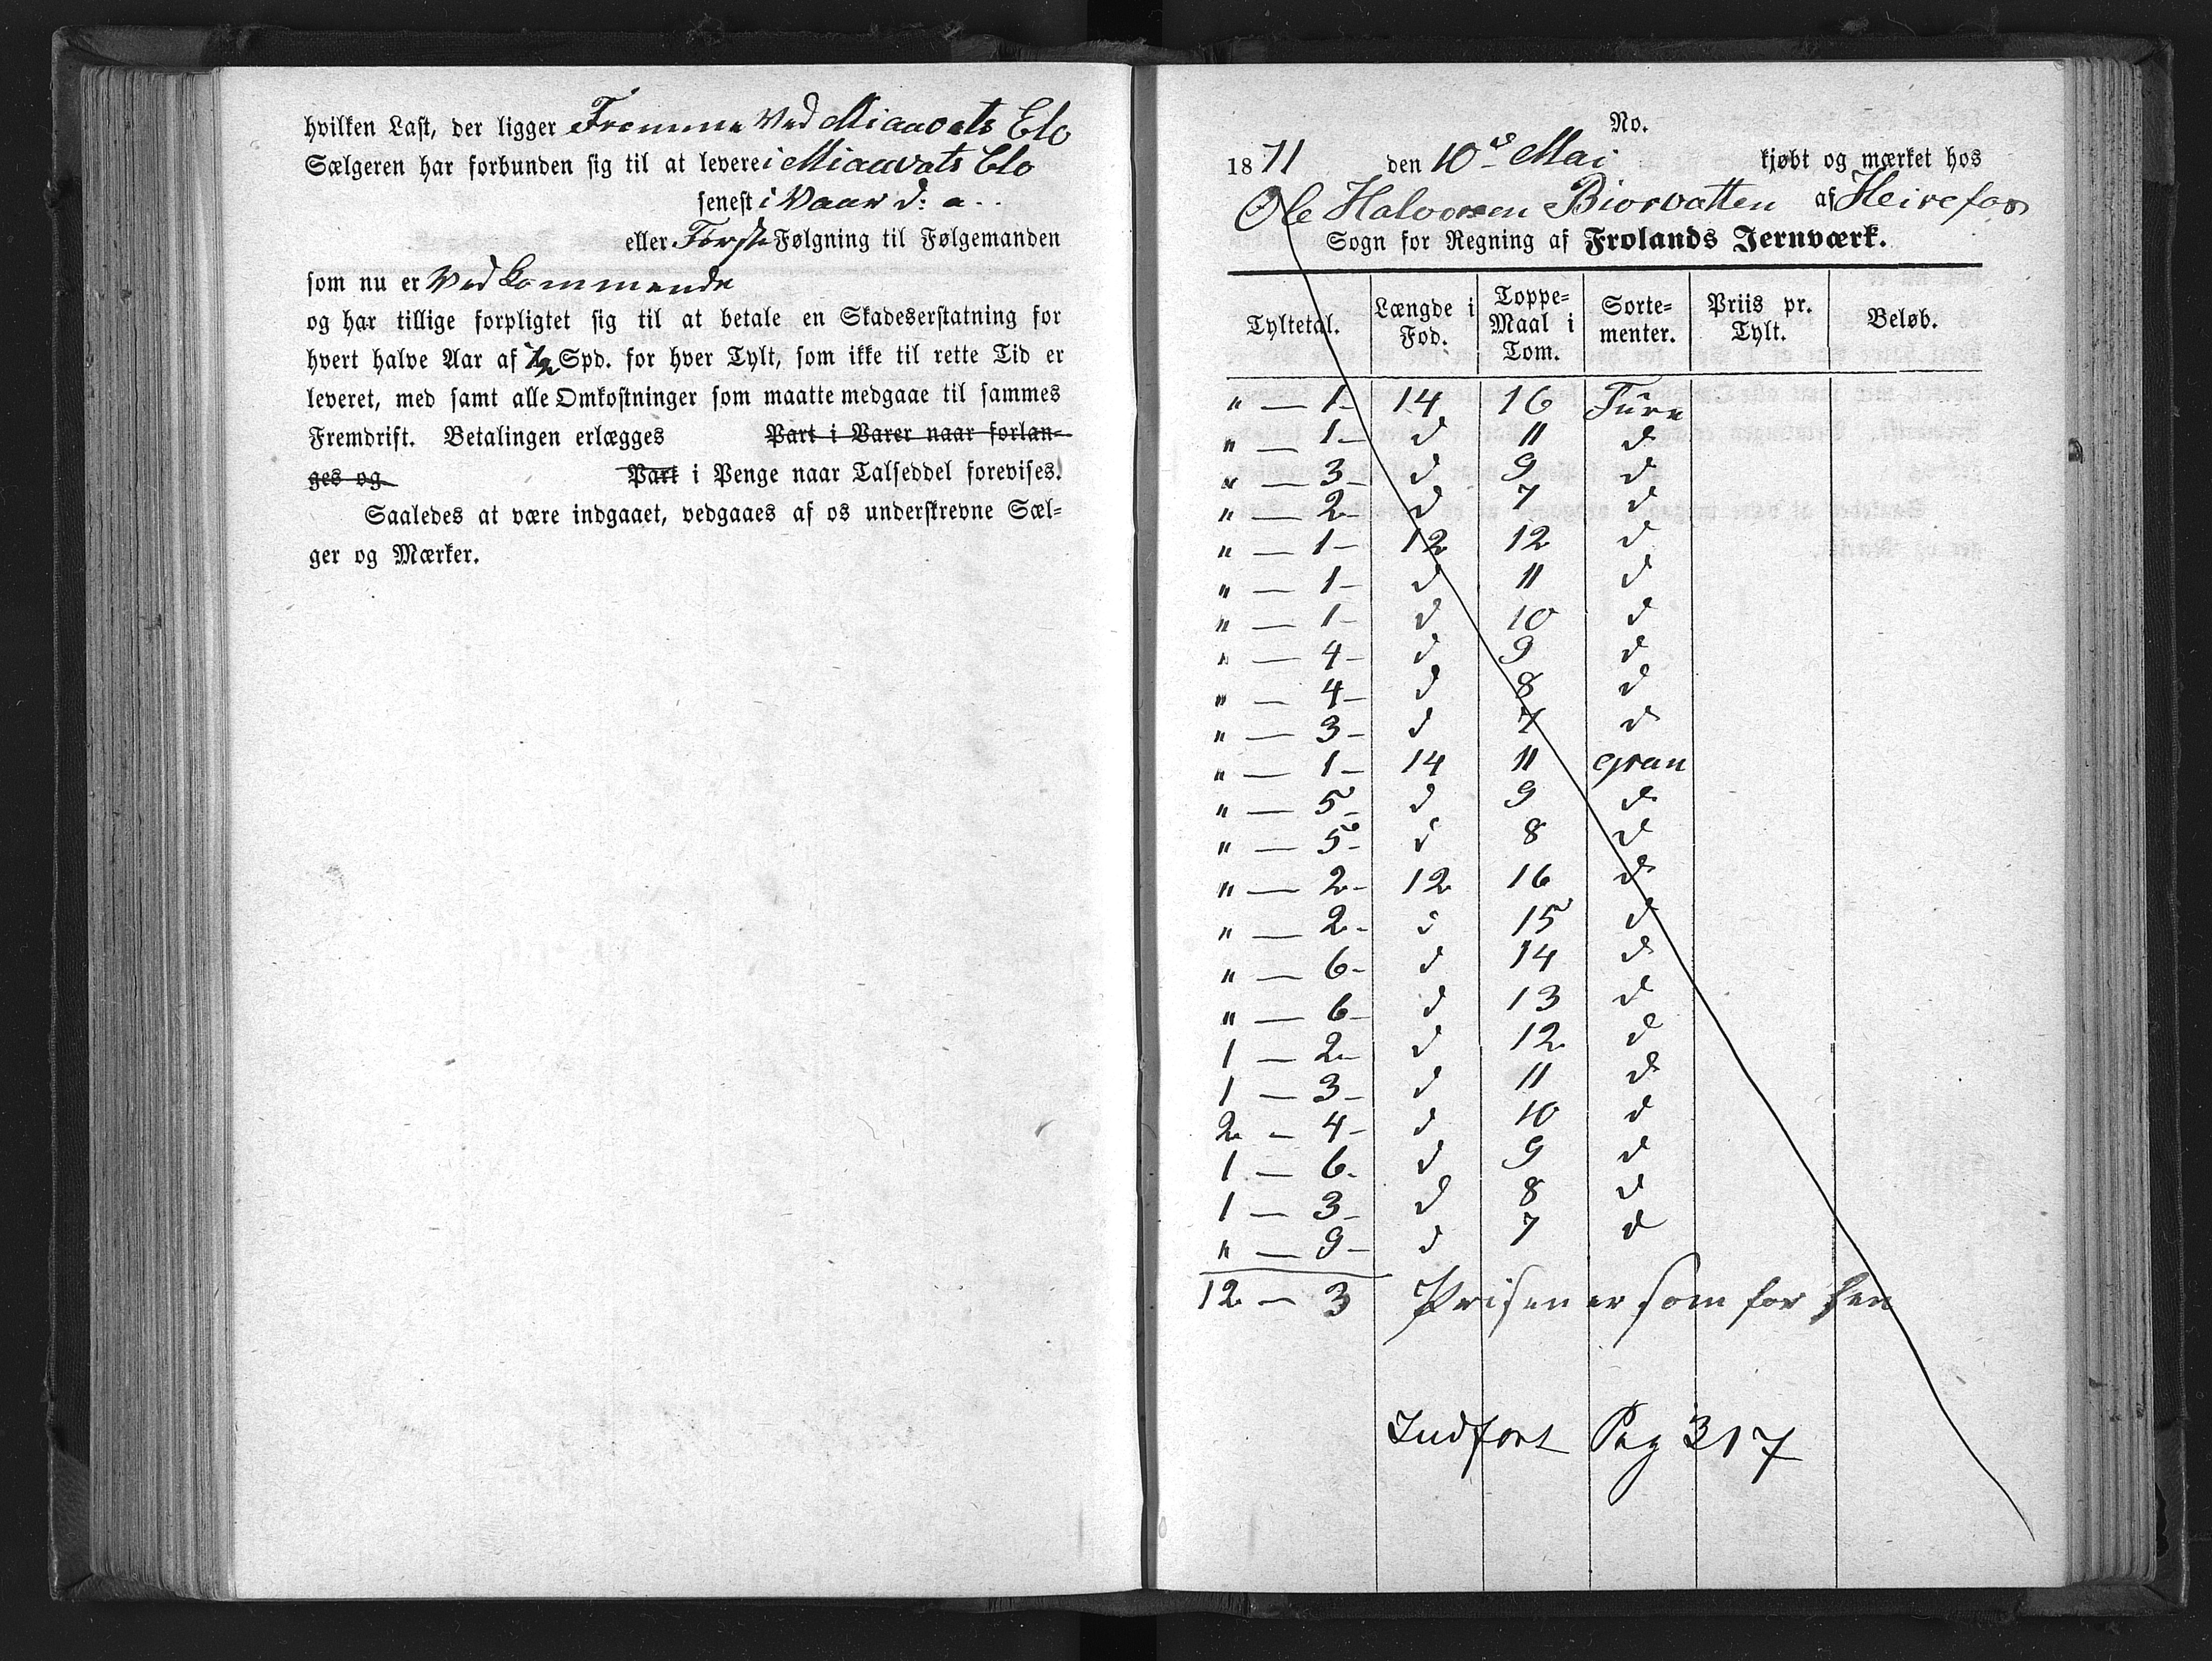 hvilken Last, der ligger Fremme ved Miaavats Elv
Sælgeren har forbunden sig til at levere i Miaavats Elv
senest i Vaar d: a.
eller Første Følgning til Følgemanden
som nu er Vedkommende
og har tillige forpligtet sig til at betale en Skadeserstatning for
hvert halve Aar af 1/2 Spd. for hver Tylt, som ikke til rette Tid er
leveret, med samt alle Omkostninger som maatte medgaae til sammes
Fremdrift. Betalingen erlægges Part i Varer naar forlan-
ges og Part i Penge naar Talseddel forevises.
Saaledes at være indgaaet, vedgaaes af os underskrevne Sæl-
ger og Mærker.
No.
1871 den 10de Mai kjøbt og mærket hos
Ole Halvorsen Biorvatten af Heirefos
Sogn for Regning af Frolands Jernværk.
Tyltetal. Længde i Fod. Toppe-Maal i Tom. Sorte-menter. Priis pr. Tylt. Beløb.
" — 1 - 14 16 Furu
" — 1 - d 11 d
" — 3 - d 9 d
" — 2 - d 7 d
" — 1 - 12 12 d
" — 1 - d 11 d
" — 1 - d 10 d
" — 4 - d 9 d
" — 4 - d 8 d
" — 3 - d 7 d
" — 1 - 14 11 gran
" — 5 - d 9 d
" — 5 - d 8 d
" — 2 - 12 16 d
" — 2 - d 15 d
" — 6 - d 14 d
" — 6 - d 13 d
1 — 2 - d 12 d
1 — 3 - d 11 d
2 - 4 - d 10 d
1 — 6 - d 9 d
1 — 3 - d 8 d
" — 9 - d 7 d
12 — 3 Prisen er som for hen
Indført Pag 317